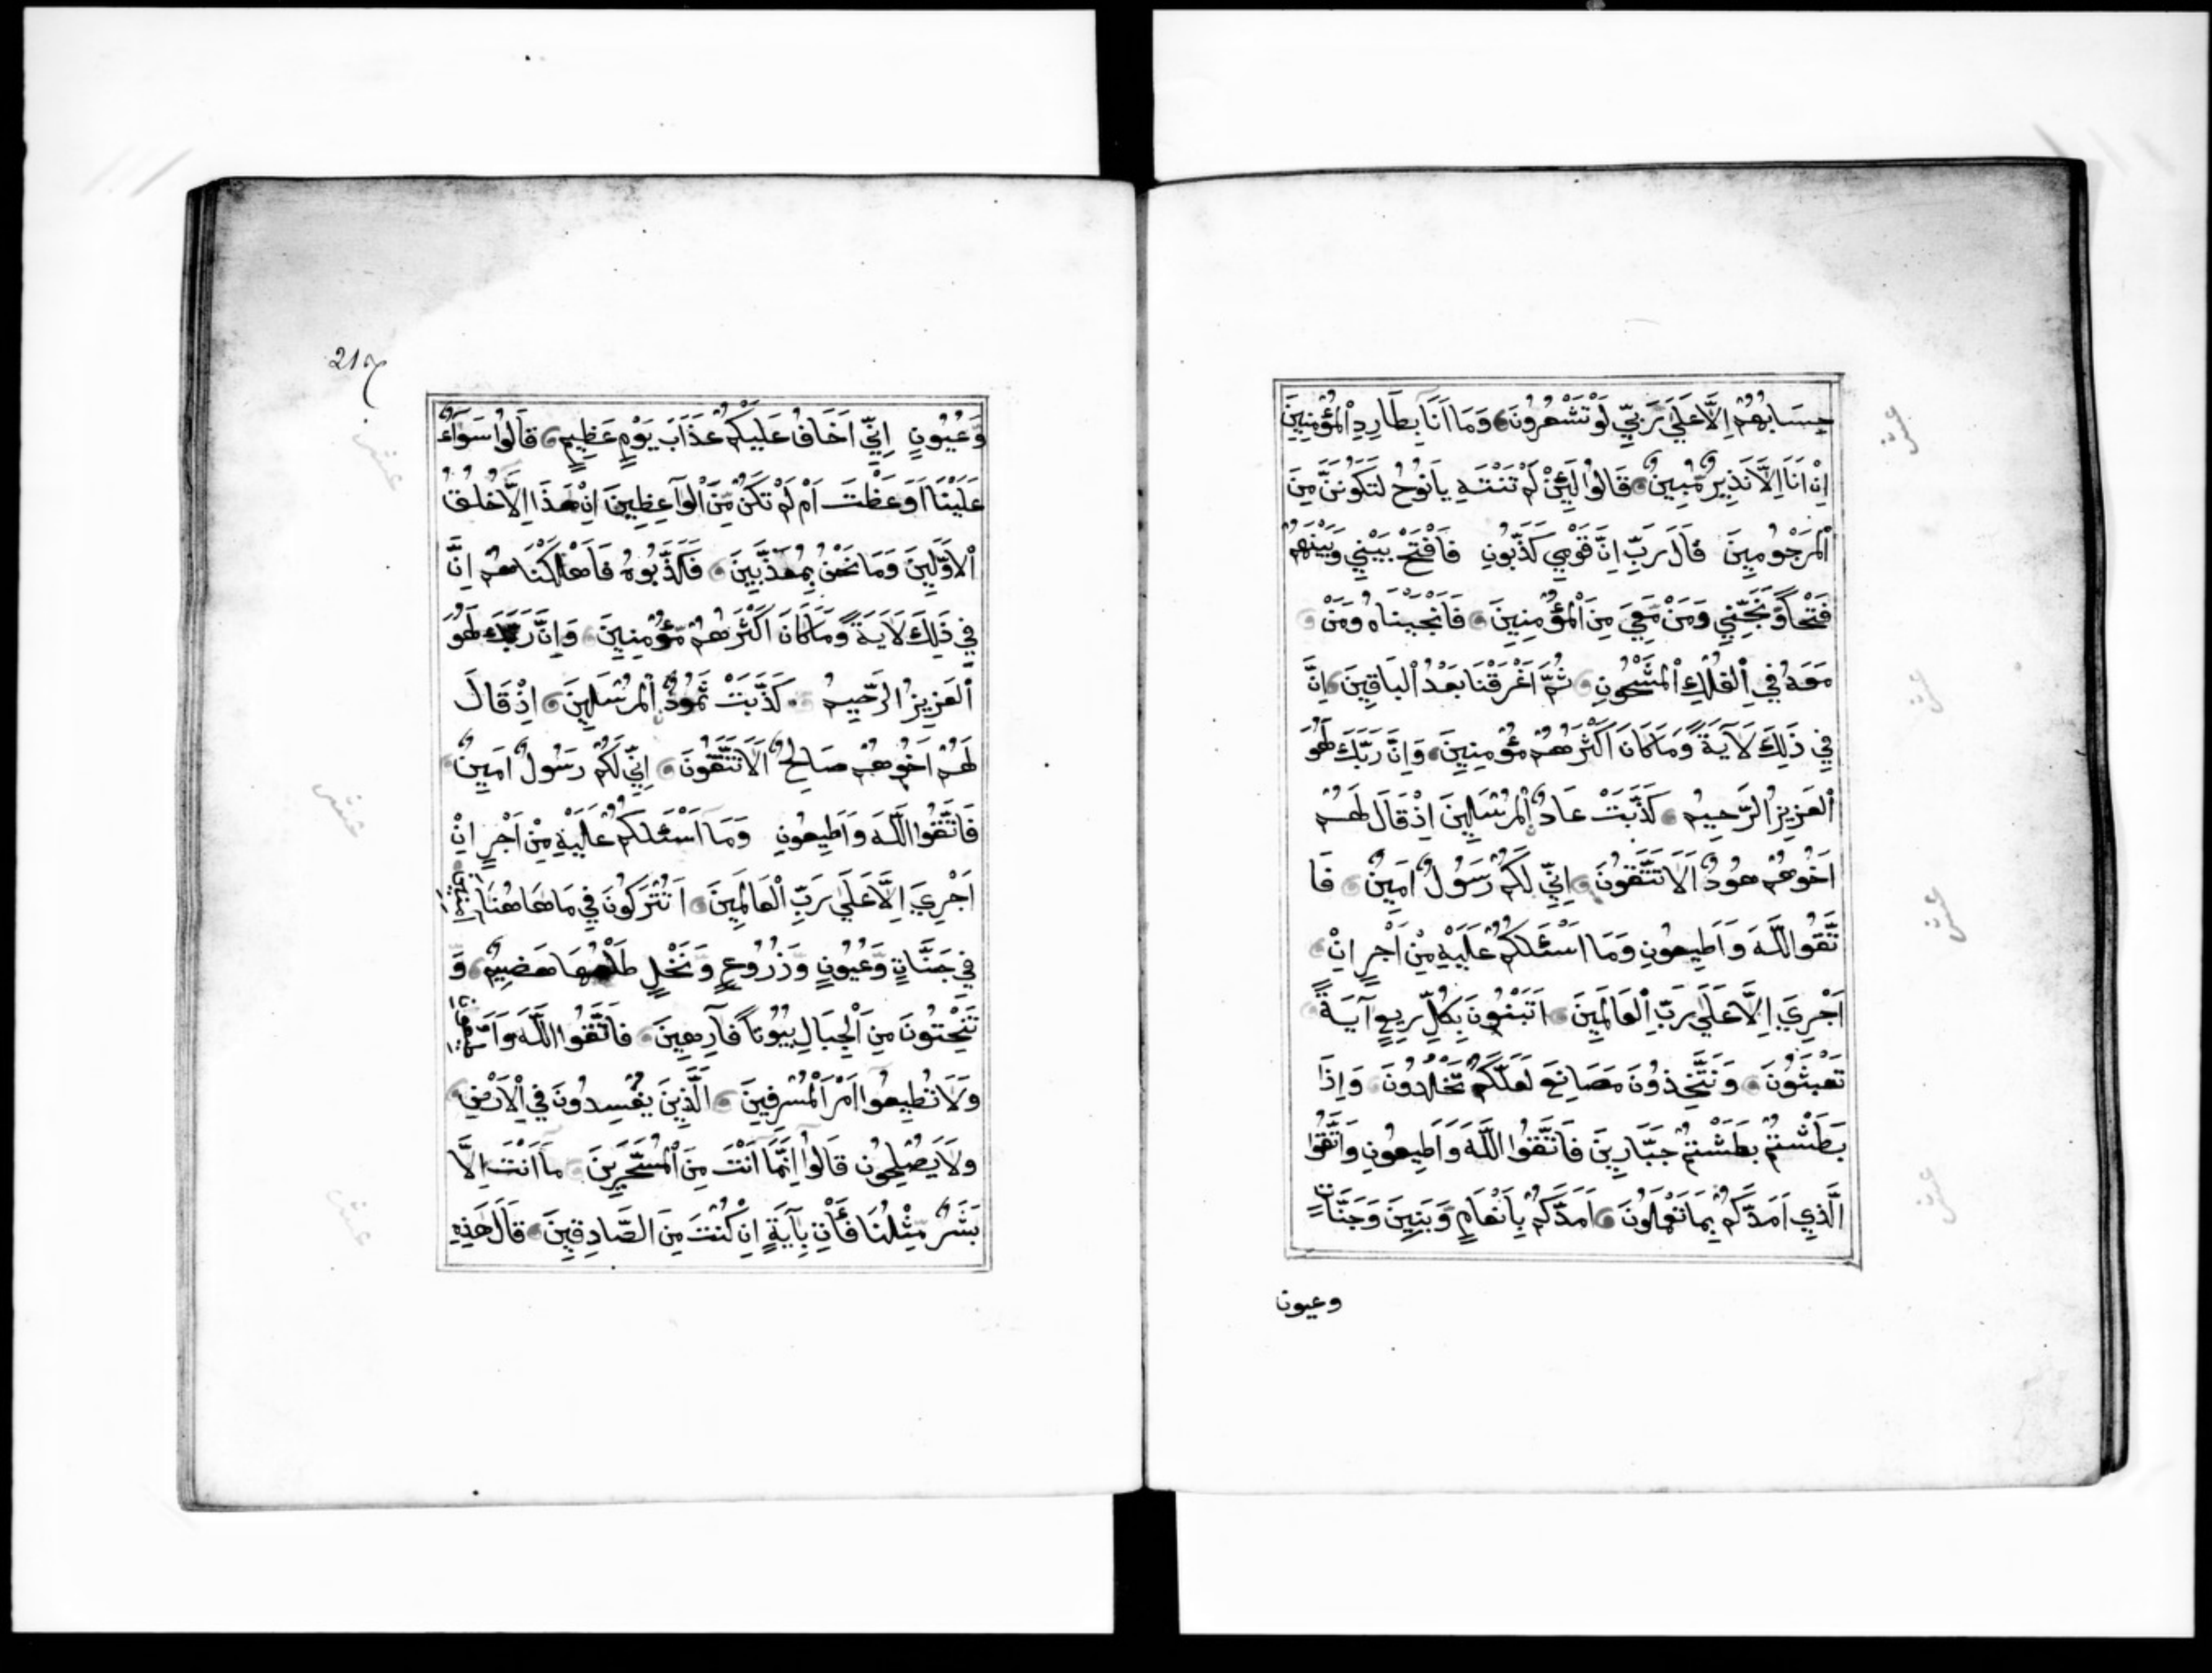 حِسَابُهُمْ اِلَّا عَلَى رَبِّي لَوْ تَشْعُرُونَ وَمَا اَنَا بِطَارِدِ الْمُؤْمِنِينَ
اِنْ اَنَا اِلَّا نَذِيرٌ مُّبِينٌ قَالُوا لَئِنْ لَّمْ تَنْتَهِ يَا نُوحُ لَتَكُونَنَّ مِنَ
الْمَرْجُومِينَ قَالَ رَبِّ اِنَّ قَوْمِي كَذَّبُونِ فَافْتَحْ بَيْنِي وَبَيْنَهُمْ
فَتْحًا وَّنَجِّنِي وَمَنْ مَّعِيَ مِنَ الْمُؤْمِنِينَ فَاَنْجَيْنَاهُ وَمَنْ
مَعَهُ فِي الْفُلْكِ الْمَشْحُونِ ثُمَّ اَغْرَقْنَا بَعْدُ الْبَاقِينَ اِنَّ
فِي ذَلِكَ لَآيَةً وَمَا كَانَ اَكْثَرُهُمْ مُؤْمِنِينَ وَاِنَّ رَبَّكَ لَهُوَ
الْعَزِيزُ الرَّحِيمُ كَذَّبَتْ عَادٌ الْمُرْسَلِينَ اِذْ قَالَ لَهُمْ
اَخُوهُمْ هُودٌ اَلَا تَتَّقُونَ اِنِّي لَكُمْ رَسُولٌ اَمِينٌ فَا
تَّقُوا اللَّهَ وَاَطِيعُونِ وَمَا اَسْئَلُكُمْ عَلَيْهِ مِنْ اَجْرٍ اِنْ
اَجْرِيَ اِلَّا عَلَى رَبِّ الْعَالَمِينَ اَتَبْنُونَ بِكُلِّ رِيعٍ آيَةً
تَعْبَثُونَ وَتَتَّخِذُونَ مَصَانِعَ لَعَلَّكُمْ تَخْلُدُونَ وَاِذَا
بَطَشْتُمْ بَطَشْتُمْ جَبَّارِينَ فَاتَّقُوا اللَّهَ وَاَطِيعُونِ وَاتَّقُوا
الَّذِي اَمَدَّكُمْ بِمَا تَعْمَلُونَ اَمَدَّكُمْ بِاَنْعَامٍ وَّبَنِينَ وَجَنَّاتٍ
وعيون
217
وَّعُيُونٍ اِنِّي اَخَافُ عَلَيْكُمْ عَذَابَ يَوْمٍ عَظِيمٍ قَالُوا سَوَآءٌ
عَلَيْنَا اَوَعَظْتَ اَمْ لَمْ تَكُنْ مِّنَ الْوَاعِظِينَ اِنْ هَذَا اِلَّا خُلُقُ
الْاَوَّلِينَ وَمَا نَحْنُ بِمُعَذَّبِينَ فَكَذَّبُوهُ فَاَهْلَكْنَاهُمْ اِنَّ
فِي ذَلِكَ لَآيَةً وَمَا كَانَ اَكْثَرُهُمْ مُّؤْمِنِينَ وَاِنَّ رَبَّكَ لَهُوَ
الْعَزِيزُ الرَّحِيمُ كَذَّبَتْ ثَمُودُ الْمُرْسَلِينَ اِذْ قَالَ
لَهُمْ اَخُوهُمْ صَالِحٌ اَلَا تَتَّقُونَ اِنِّي لَكُمْ رَسُولٌ اَمِينٌ
فَاتَّقُوا اللَّهَ وَاَطِيعُونِ وَمَا اَسْئَلُكُمْ عَلَيْهِ مِنْ اَجْرٍ اِنْ
اَجْرِيَ اِلَّا عَلَى رَبِّ الْعَالَمِينَ اَتُتْرَكُونَ فِي مَا هَاهُنَا
فِي جَنَّاتٍ وَّعُيُونٍ وَّزُرُوعٍ وَّنَخْلٍ طَلْعُهَا هَضِيمٌ وَ
تَنْحِتُونَ مِنَ الْجِبَالِ بُيُوتًا فَارِهِينَ فَاتَّقُوا اللَّهَ وَاَ
وَلَا تُطِيعُوا اَمْرَ الْمُسْرِفِينَ الَّذِينَ يُفْسِدُونَ فِي الْاَرْضِ
وَلَا يُصْلِحُونَ قَالُوا اِنَّمَا اَنْتَ مِنَ الْمُسَحَّرِينَ مَا اَنْتَ اِلَّا
بَشَرٌ مِّثْلُنَا فَأْتِ بِآيَةٍ اِنْ كُنْتَ مِنَ الصَّادِقِينَ قَالَ هَذِهِ